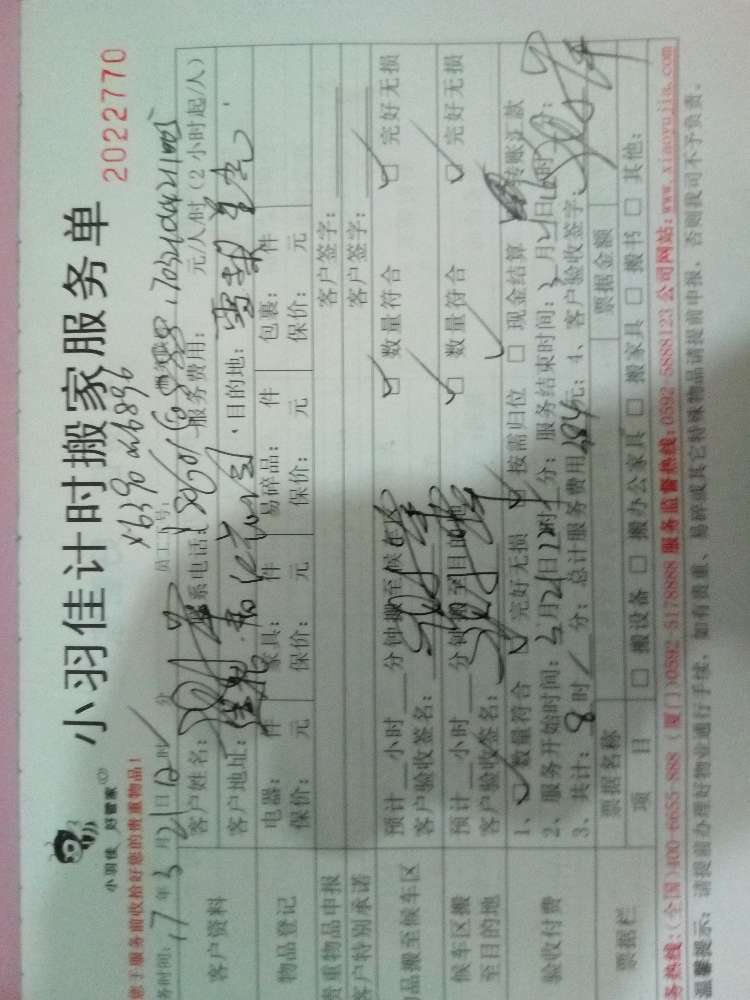 小羽佳 好管家
小羽佳计时搬家服务单
2022770
您于服务前收拾好您的贵重物品!
务时间: 17年3月21日12时 分 员工工号:
客户资料
客户姓名: 联系电话: 服务费用: 元/人/时(2小时起/人)
客户地址: 目的地:
物品登记
电器: 件 家具: 件 易碎品: 件 包裹: 件
保价: 元 保价: 元 保价: 元 保价: 元
贵重物品申报 客户签字:
客户特别承诺 客户签字:
品搬至候车区
预计 小时 分钟搬至候车区 ☑ 数量符合 ☑ 完好无损
客户验收签名:
候车区搬至目的地
预计 小时 分钟搬至目的地 ☑ 数量符合 ☑ 完好无损
客户验收签名:
验收付费
1、☑ 数量符合 ☑ 完好无损 ☑ 按需归位 □ 现金结算 转账汇款
2、服务开始时间: 3月21日12时 分; 服务结束时间: 3月21日 时
3、共计: 8时 分; 总计服务费用 元; 4、客户验收签字:
票据栏
票据名称 票据金额
项目 □ 搬设备 □ 搬办公家具 □ 搬家具 □ 搬书 □ 其他:
务热线:(全国)400-6655-888 (厦门)0592-5178888 服务监督热线:0592-5888123 公司网站:www.xiaoyujia.com
温馨提示: 请提前办理好物业通行手续, 如有贵重、易碎或其它特殊物品请提前申报, 否则我司不予负责。